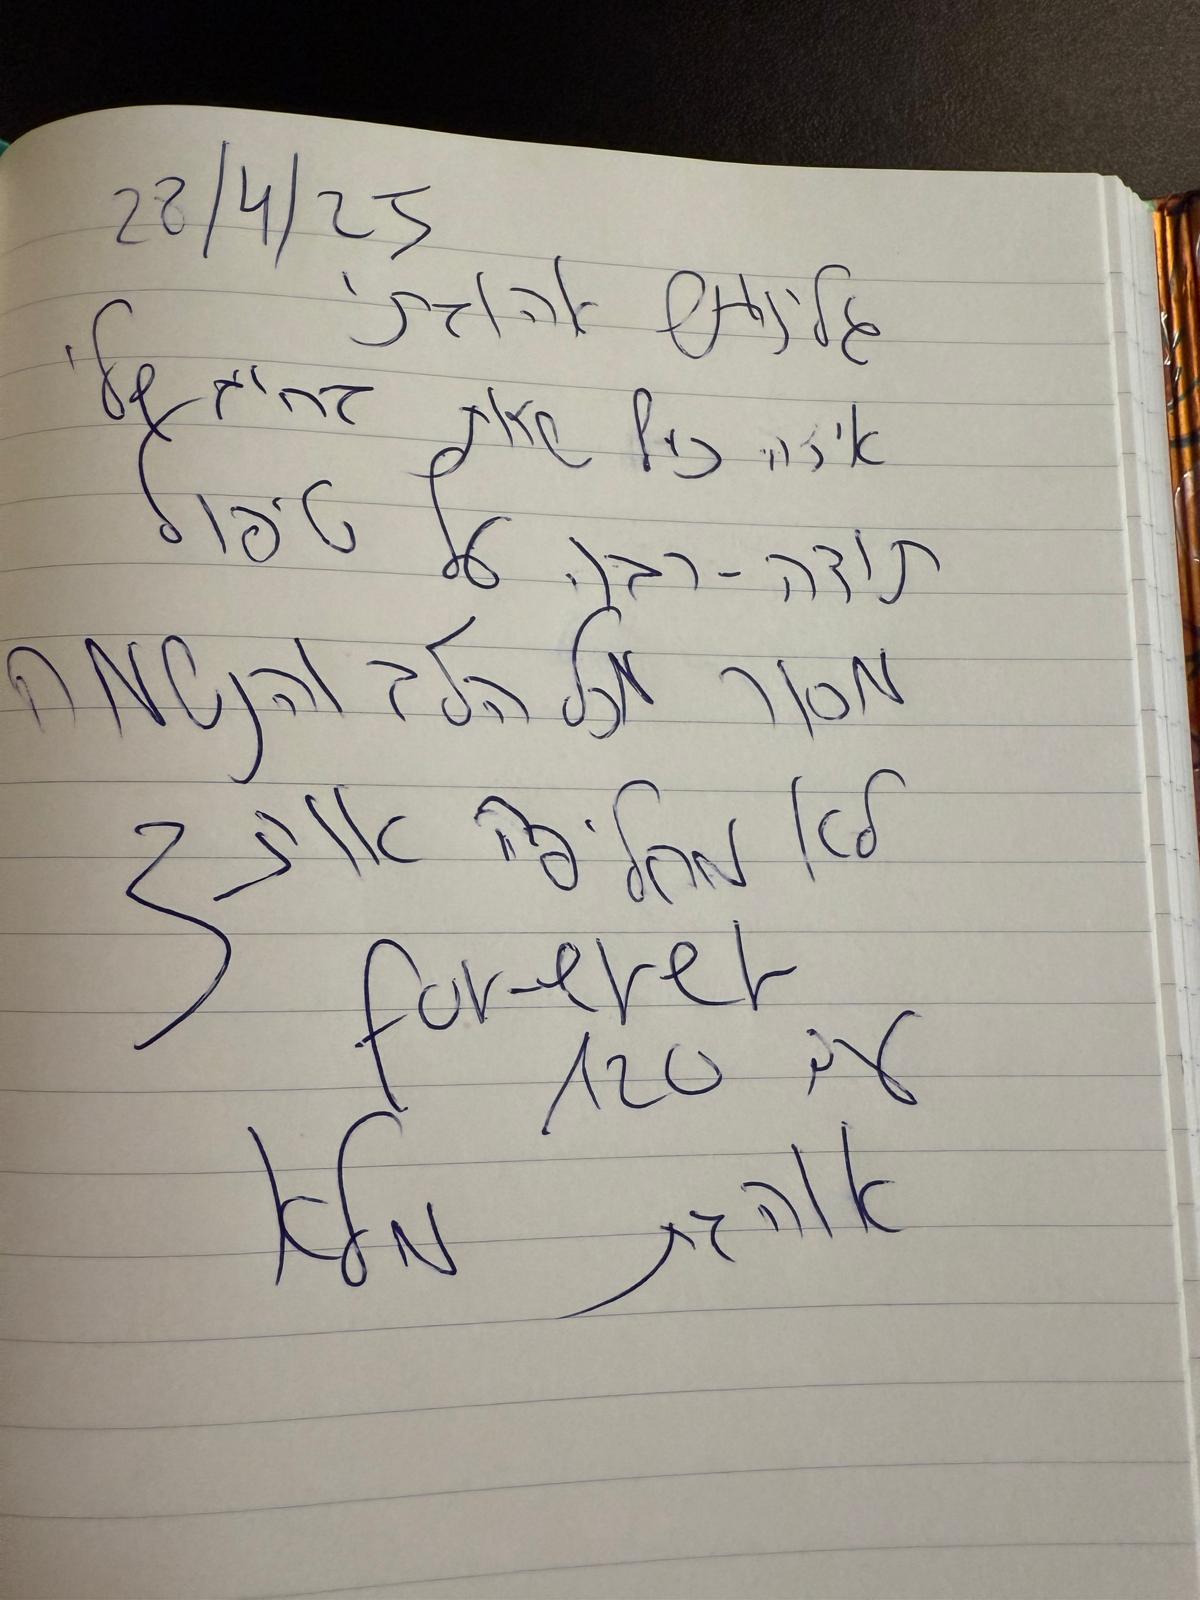 28/4/25
אהובתי
איזה כיף שאת בחיים שלי
תודה-רבה על טיפול
מסור מכל הלב והנשמה
לא מחליפה אותך
for-ever
עד 120
אוהבת מלא